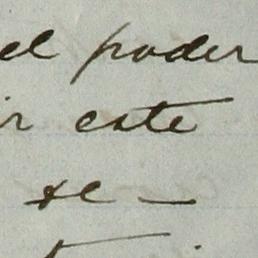 el poder
ir este
se —